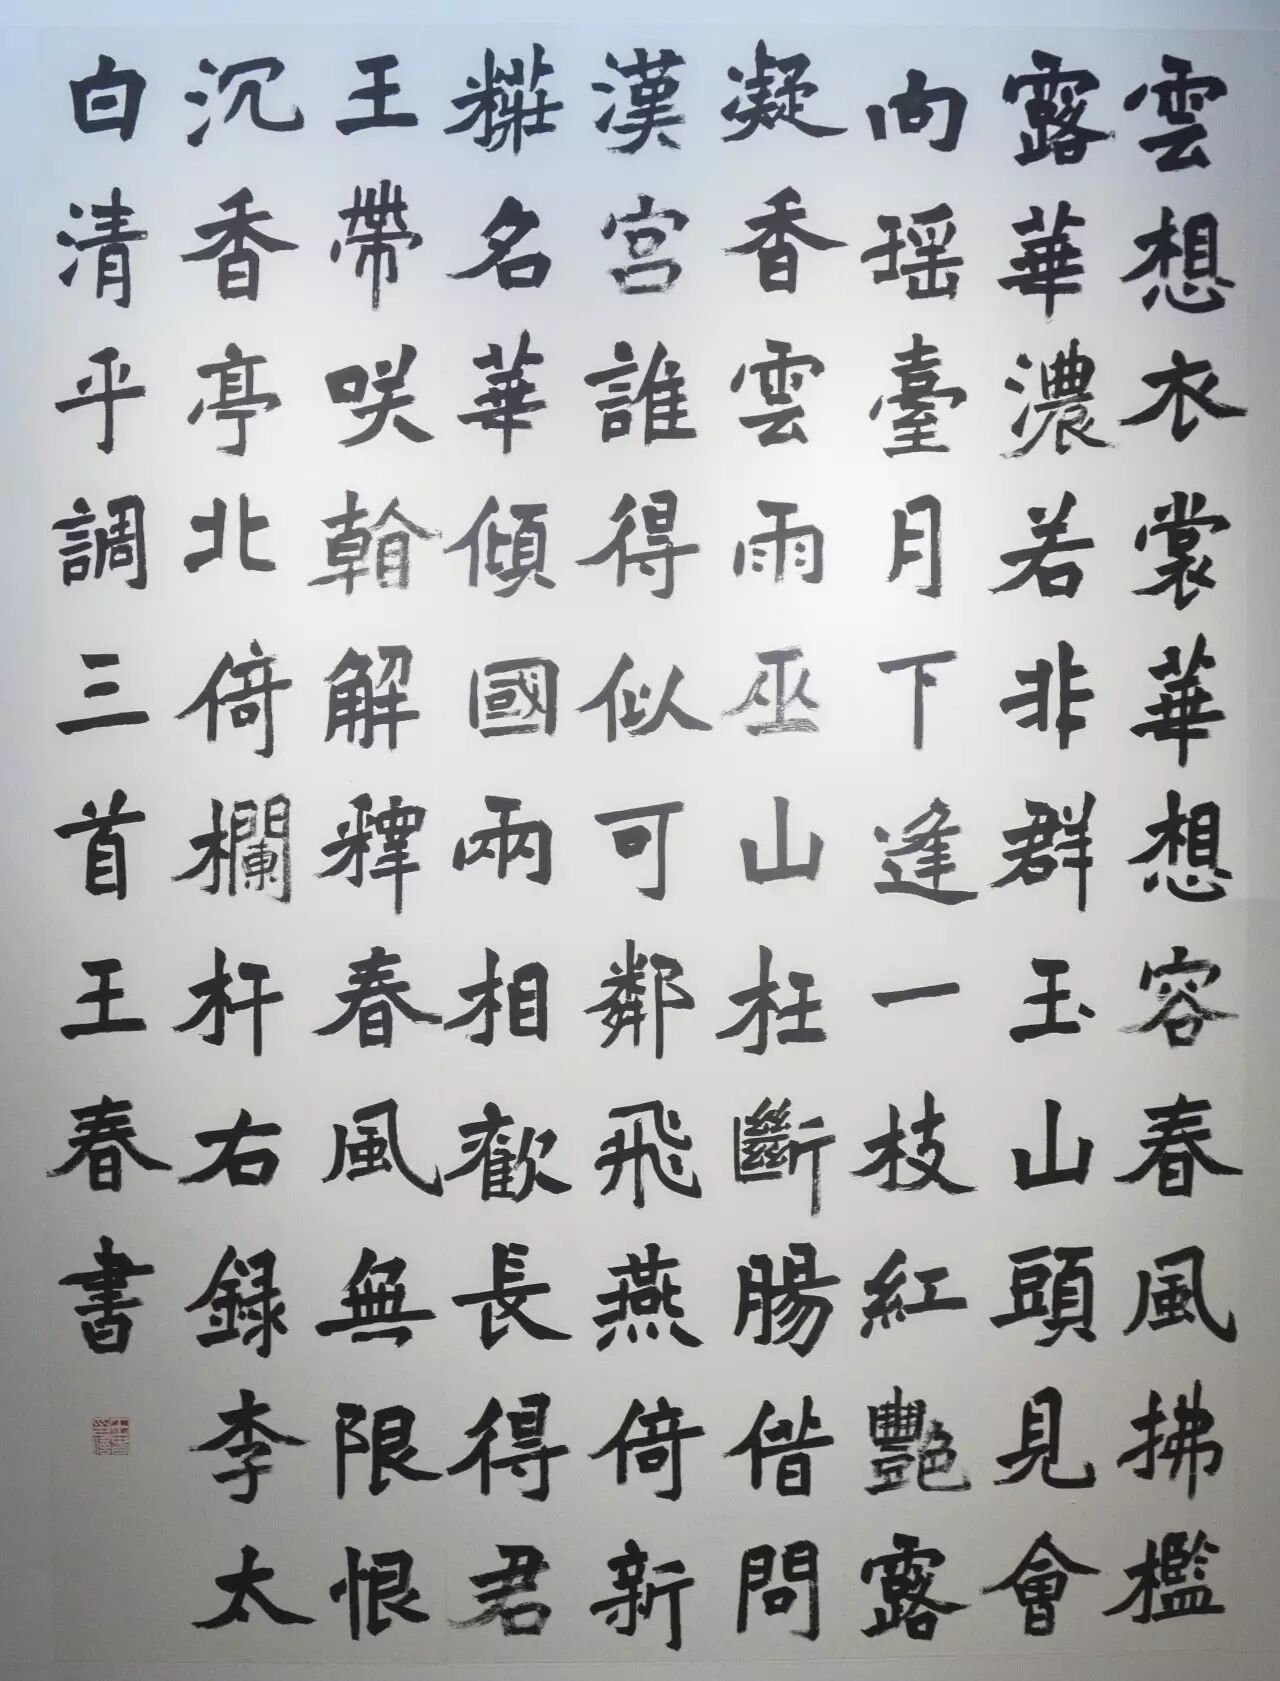 雲想衣裳華想容春風拂檻
露華濃若非群玉山頭見會
向瑶臺月下逢一枝紅艷露
凝香雲雨巫山枉斷腸偕問
漢宮誰得似可鄰飛燕倚新
糚名華傾國兩相歡長得君
王帶咲幹解釋春風無限恨
沉香亭北倚欄杆右録李太
白清平調三首王春書